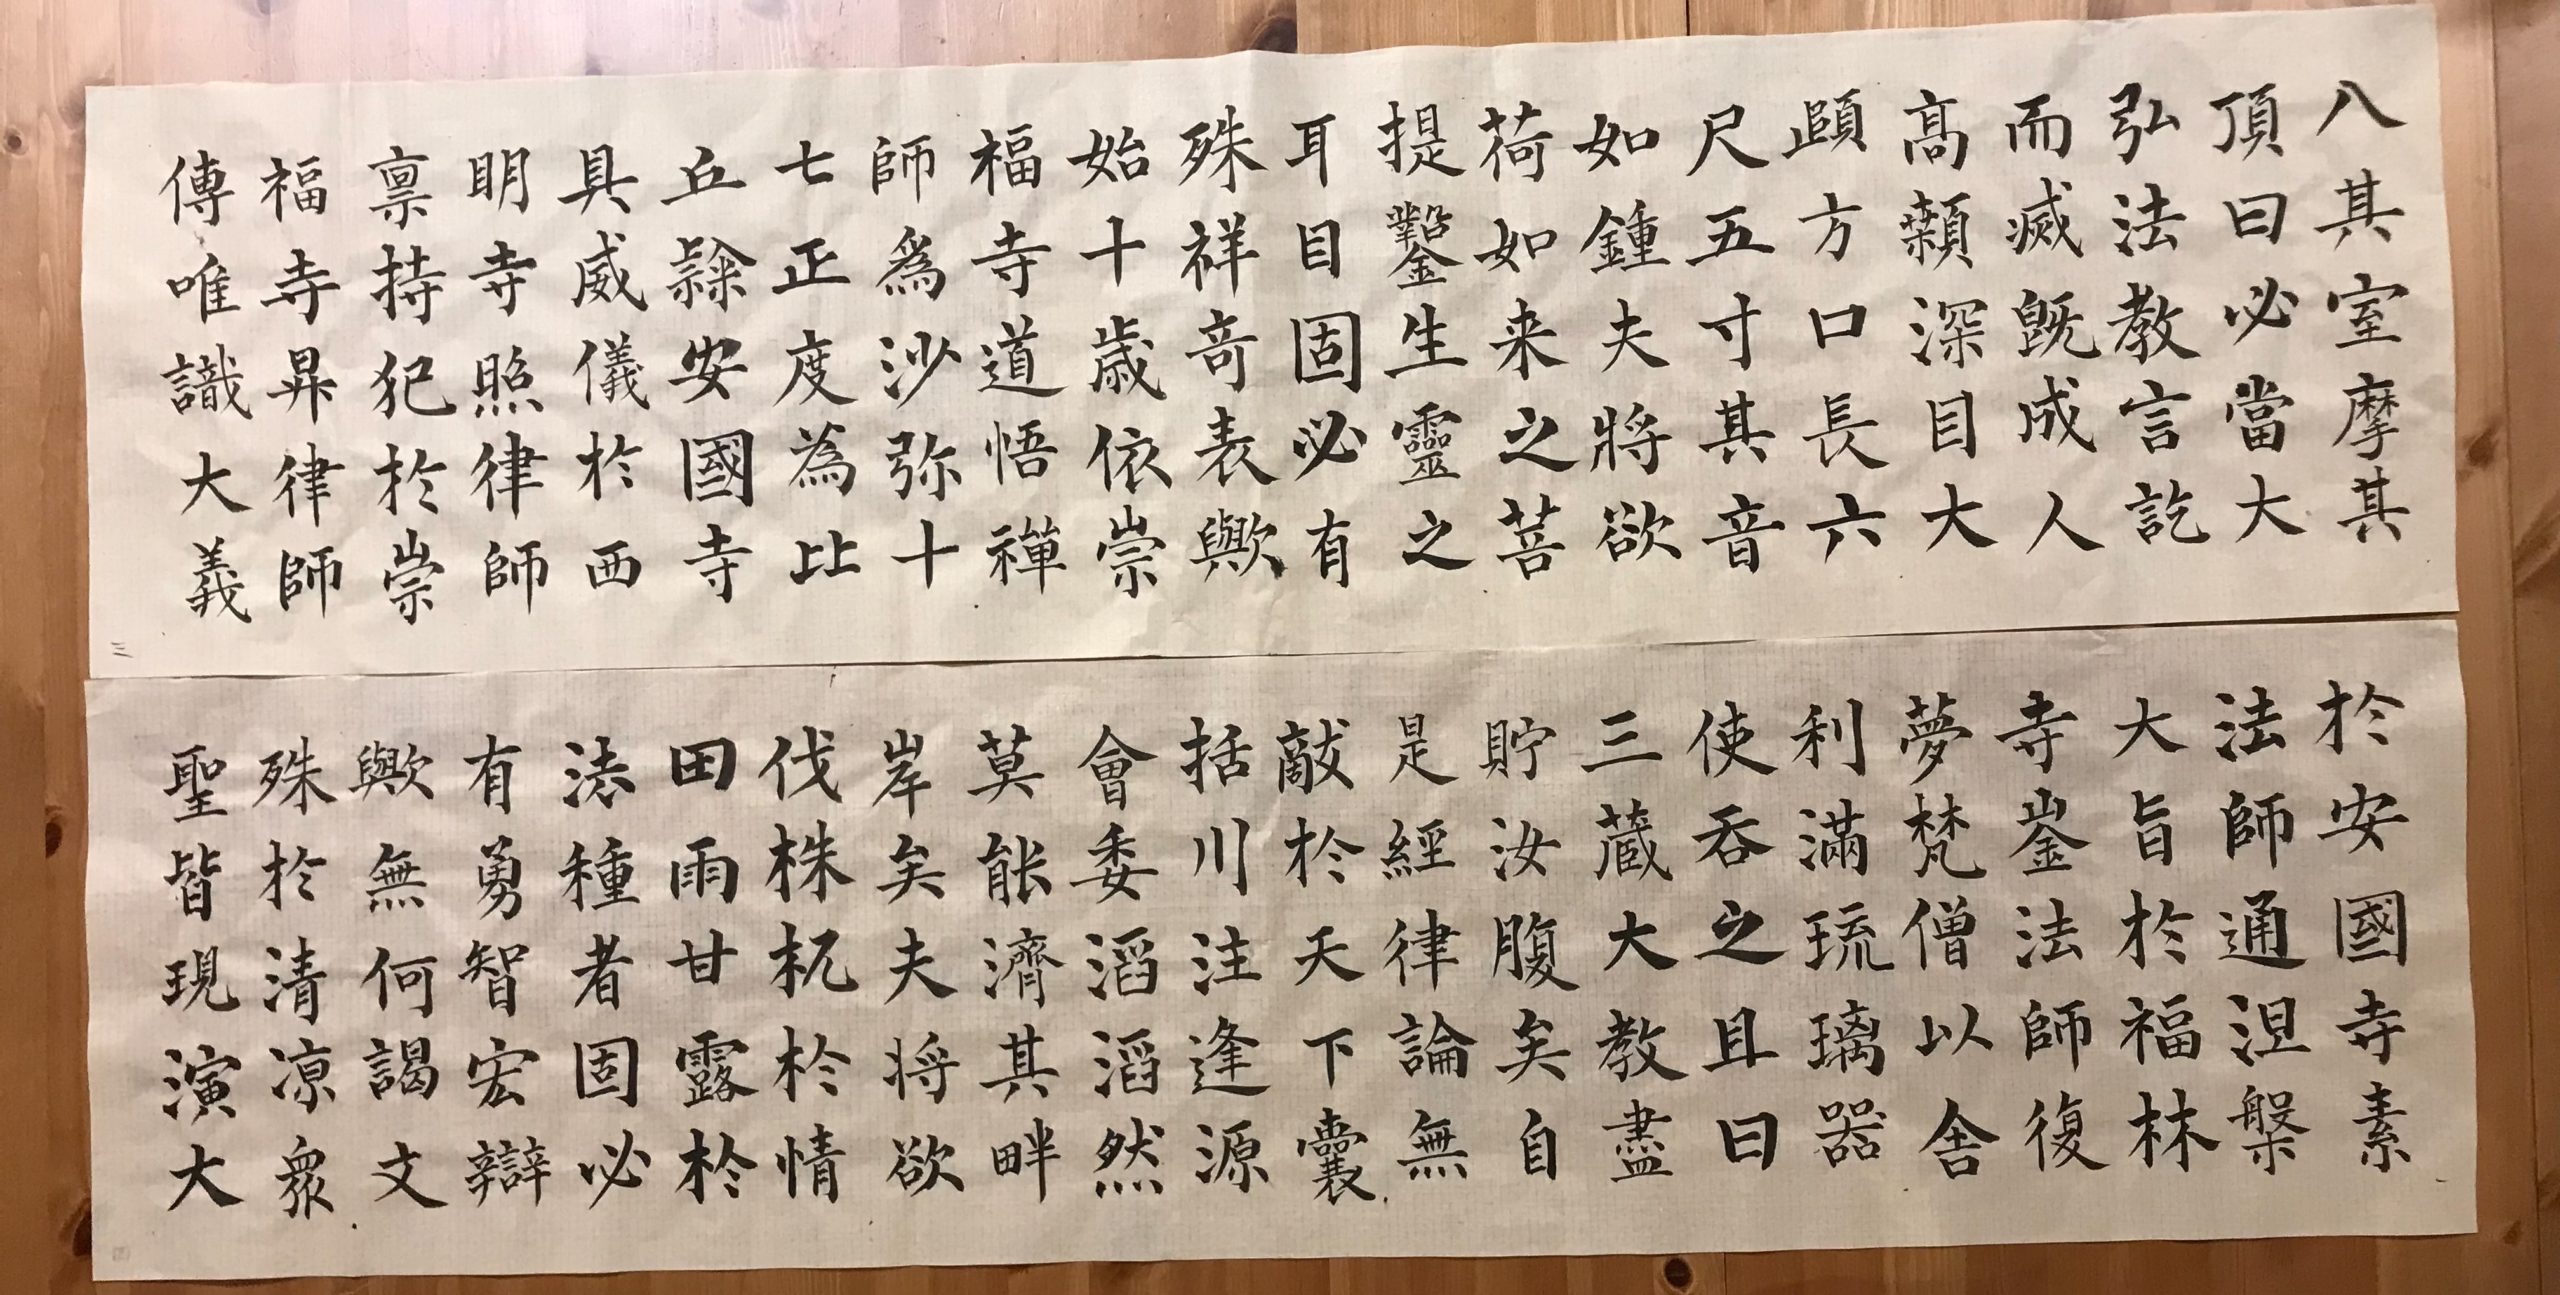 八其室摩其
頂曰必當大
弘法教言訖
而滅既成人
高顙深目大
頤方口長六
尺五寸其音
如鍾夫將欲
荷如来之菩
提鑿生靈之
耳目固必有
殊祥奇表歟
始十歳依崇
福寺道悟禪
師爲沙弥十
七正度為比
丘隷安國寺
具威儀於西
明寺照律師
禀持犯於崇
福寺昇律師
傳唯識大義
三
於安國寺素
法師通涅槃
大旨於福林
寺崟法師復
夢梵僧以舎
利滿琉璃器
使吞之且曰
三蔵大教盡
貯汝腹矣自
是經律論無
敵於天下囊
括川注逢源
會委滔滔然
莫能濟其畔
岸矣夫将欲
伐株杌於情
田雨甘露於
法種者固必
有勇智宏辯
歟無何謁文
殊於清凉衆
聖皆現演大
四